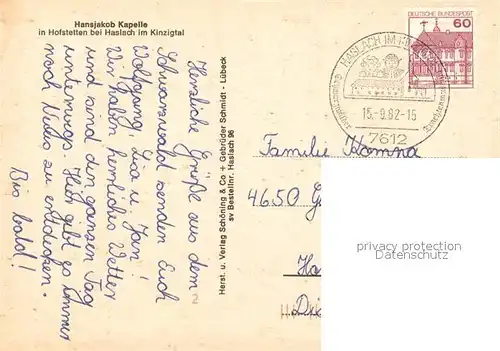 Hansjakob Kapelle
in Hofstetten bei Haslach im Kinzigtal
Herzliche Grüße aus dem
Schwarzwald senden Euch
Wolfgang, Lisa u. Jan!
Wir haben herrliches Wetter
und sind den ganzen Tag
unterwegs. Hier gibt es immer
noch Vieles zu entdecken.
Bis bald!
Herst. u. Verlag Schöning & Co + Gebrüder Schmidt - Lübeck
sv Bestellnr. Haslach 96
2
DEUTSCHE BUNDESPOST
60
HASLACH IM
15.-9.82-15
7612
Familie Homna
4650 G
Ha
privacy protection
Datenschutz